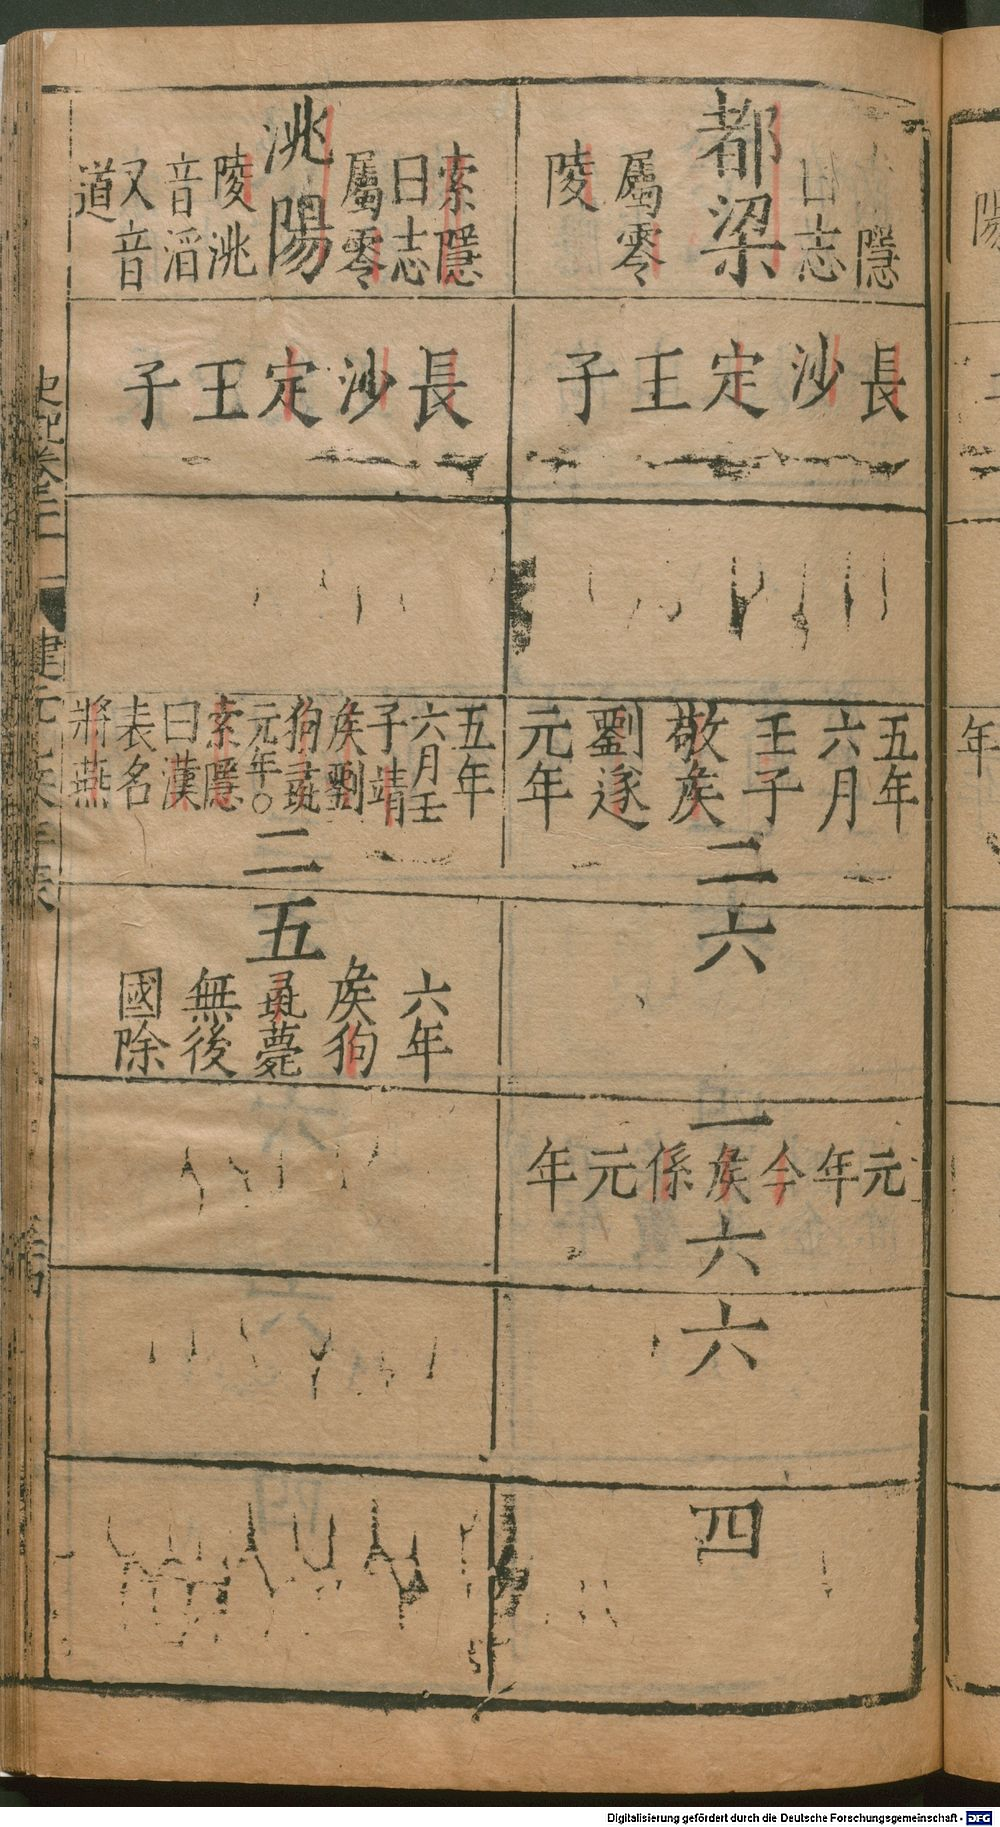 都梁
隱
曰志
屬零
陵
長沙定王子
五年
六月
壬子
敬矦
劉遂
元年
二
六
一
元年今矦係元年
六
六
四
洮陽
索隱
曰志
屬零
陵洮
音滔
又音
道
長沙定王子
五年
六月壬
子靖
矦劉
狗彘
元年○
索隱
曰漢
表名
將燕
二
五
六年
矦狗
彘薨
無後
國除
Digitalisierung gefördert durch die Deutsche Forschungsgemeinschaft - DFG